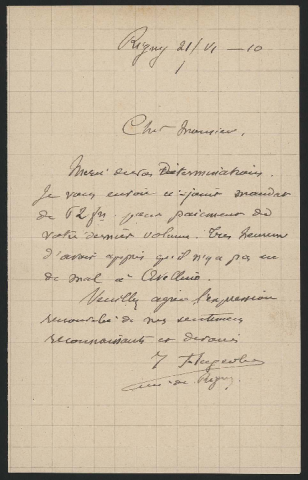 Rigny 21/VI – 10
Cher Monsieur,
Merci de vos Déterminations.
Je vous envoie ci-joint mandat
de 12 frs pour paiement de
votre dernier volume. Très heureux
d'avoir appris qu'il n'y a pas eu
de mal à Avellino.
Veuillez agréer l'expression
renouvelée de mes sentiments
reconnaissants et dévoués
curé de Rigny